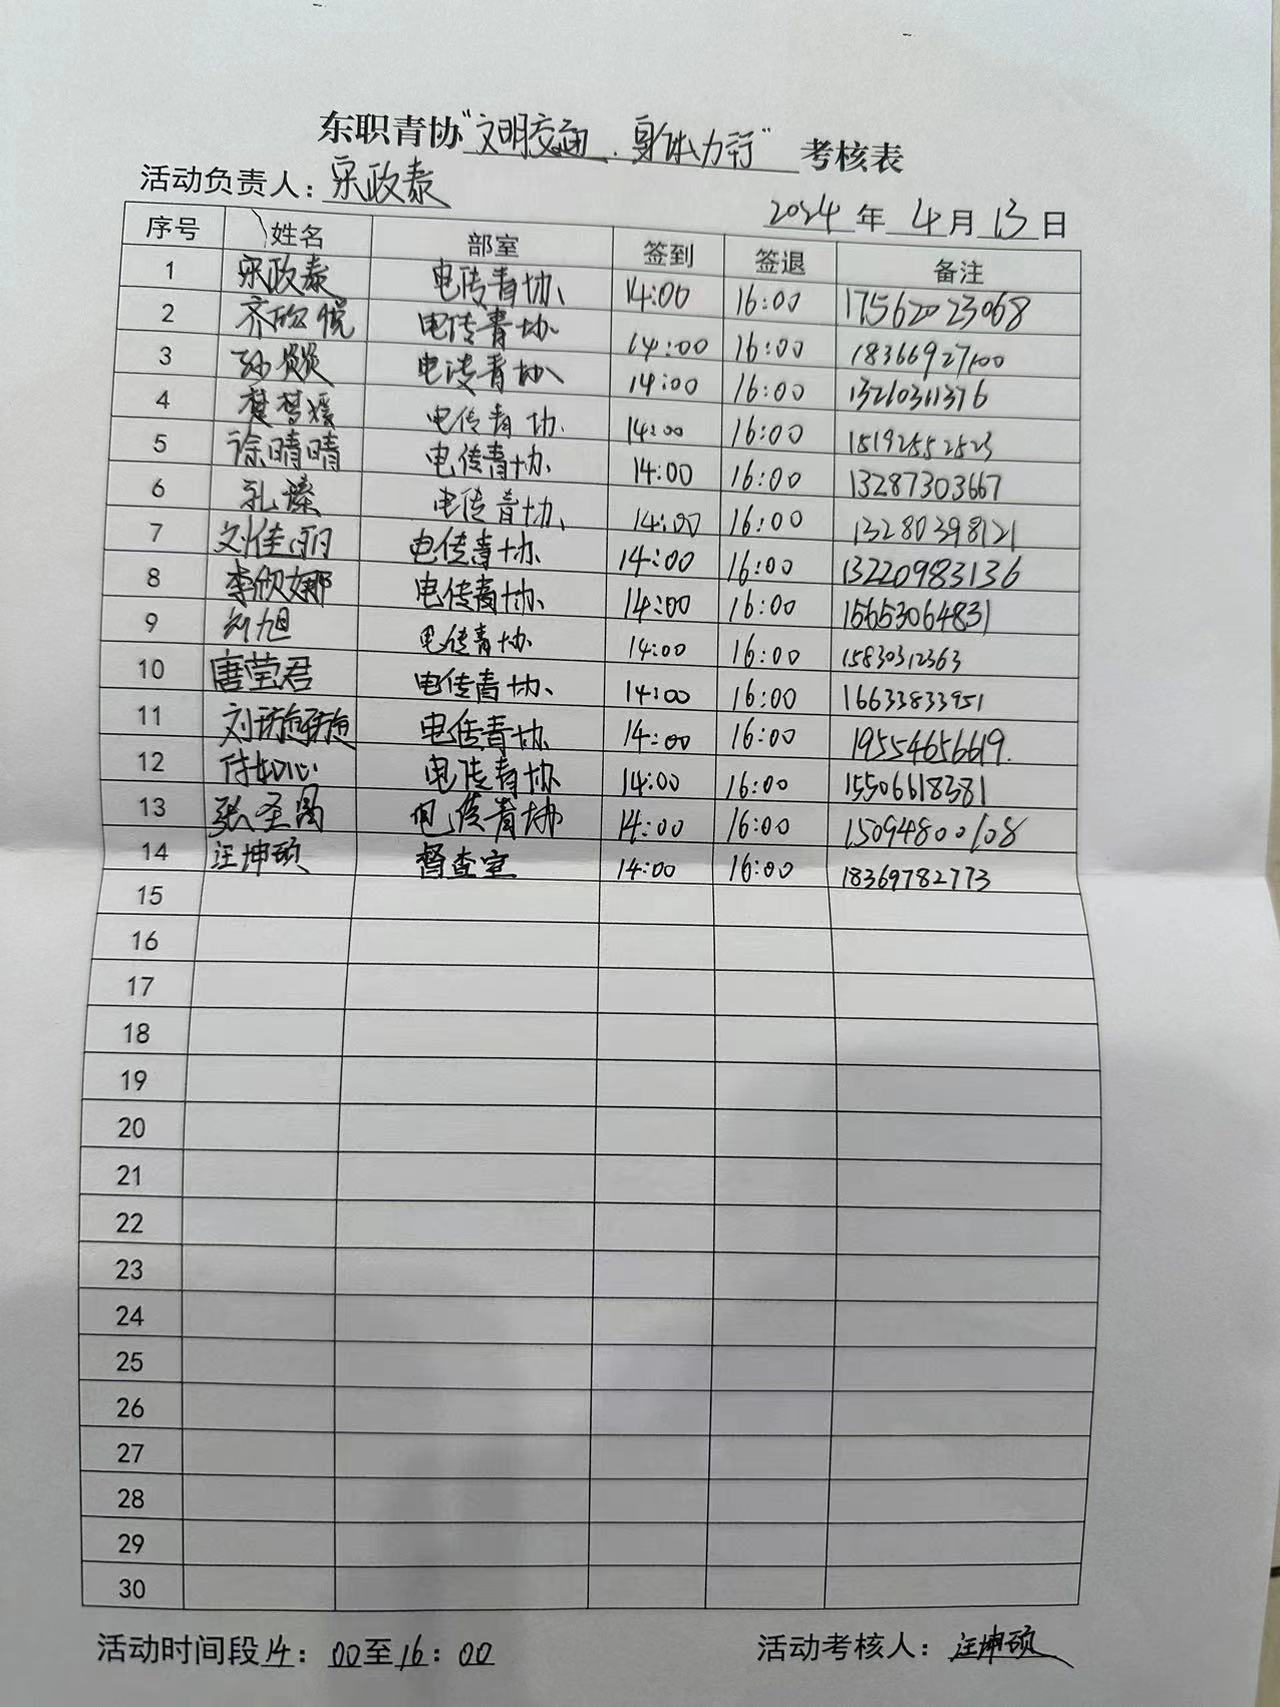 东职青协“文明交通、身体力行”考核表
活动负责人：宋政泰
2024年4月13日
序号 姓名 部室 签到 签退 备注
1 宋政泰 电传青协 14:00 16:00 17562023068
2 齐欣悦 电传青协 14:00 16:00 18366927100
3 孙燚 电传青协 14:00 16:00 13210311376
4 楚梦媛 电传青协 14:00 16:00 15192552523
5 徐晴晴 电传青协 14:00 16:00 13287303667
6 孔臻 电传青协 14:00 16:00 13280398121
7 刘佳丽 电传青协 14:00 16:00 13220983136
8 李欣娜 电传青协 14:00 16:00 15653064831
9 刘旭 电传青协 14:00 16:00 15830312363
10 唐莹君 电传青协 14:00 16:00 16633833951
11 刘 电传青协 14:00 16:00 19554656619.
12 付如心 电传青协 14:00 16:00 15506618381
13 张圣 电传青协 14:00 16:00 15094800108
14 汪坤硕 督查室 14:00 16:00 18369782773
15
16
17
18
19
20
21
22
23
24
25
26
27
28
29
30
活动时间段14：00至16：00 活动考核人：汪坤硕